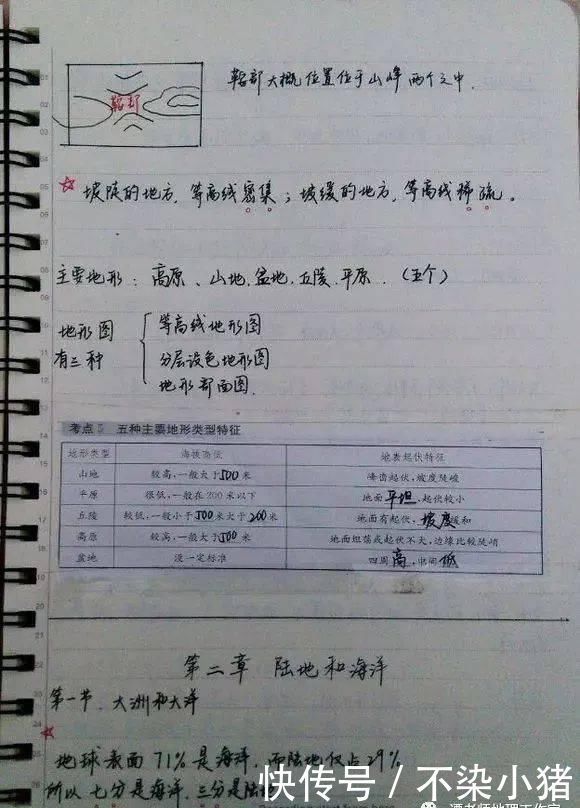 鞍部
鞍部大概位置位于山峰两个之中.
☆ 坡陡的地方,等高线密集;坡缓的地方,等高线稀疏。
主要地形:高原、山地、盆地、丘陵、平原.(五个)
地形图有三种
等高线地形图
分层设色地形图
地形部面图.
考点5 五种主要地形类型特征
地形类型 海拔高低 地表起伏特征
山地 较高,一般大于500米 峰峦起伏,坡度陡峻
平原 很低,一般在200米以下 地面平坦,起伏较小
丘陵 较低,一般小于500米大于200米 地面有起伏,坡度缓和
高原 较高,一般大于500米 地面坦荡或起伏不大,边缘比较陡峭
盆地 没一定标准 四周高,中间低
第二章 陆地和海洋
第一节、大洲和大洋
☆
地球表面71%是海洋,而陆地仅占29%
所以七分是海洋,三分是陆地
快传号/不染小猪